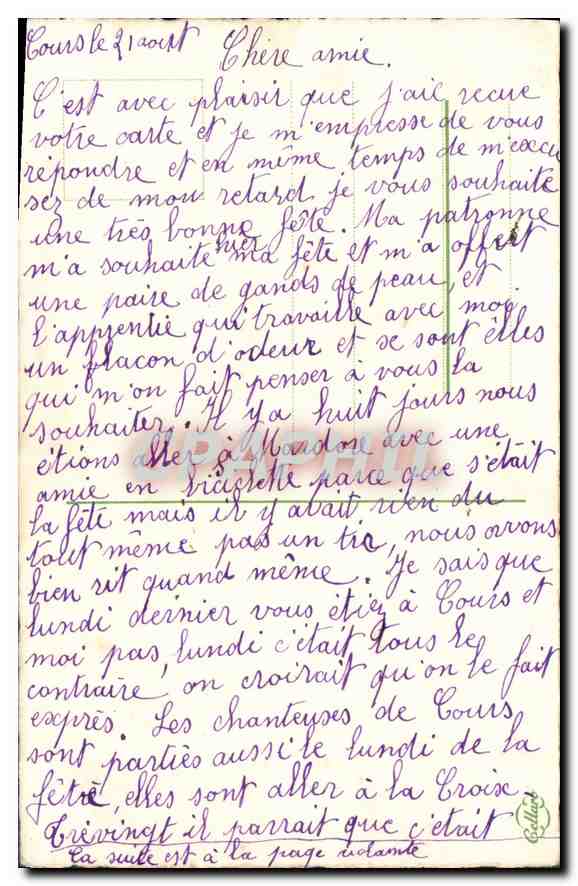 Cours le 21 aout
Chère amie.
C'est avec plaisir que j'aie recue
votre carte et je m'empresse de vous
répondre et en même temps de m'excu
ser de mon retard je vous souhaite
une très bonne fête. Ma patronne
m'a souhaité hier ma fête et m'a offert
une paire de gands de peau, et
l'apprentie qui travaille avec moi
un flacon d'odeur et se sont elles
qui m'on fait penser à vous la
souhaiter. Il y a huit jours nous
étions aller à Mardore avec une
amie en biciclette parce que s'était
la fête mais il y avait rien du
tout même pas un tir, nous avons
bien rit quand même. Je sais que
lundi dernier vous étiez à Cours et
moi pas, lundi c'était tous le
contraire on croirait qu'on le fait
exprès. Les chanteuses de Cours
sont parties aussi le lundi de la
fête, elles sont aller à la Croix
Trévingt il parrait que c'était
la suite est à la page volante